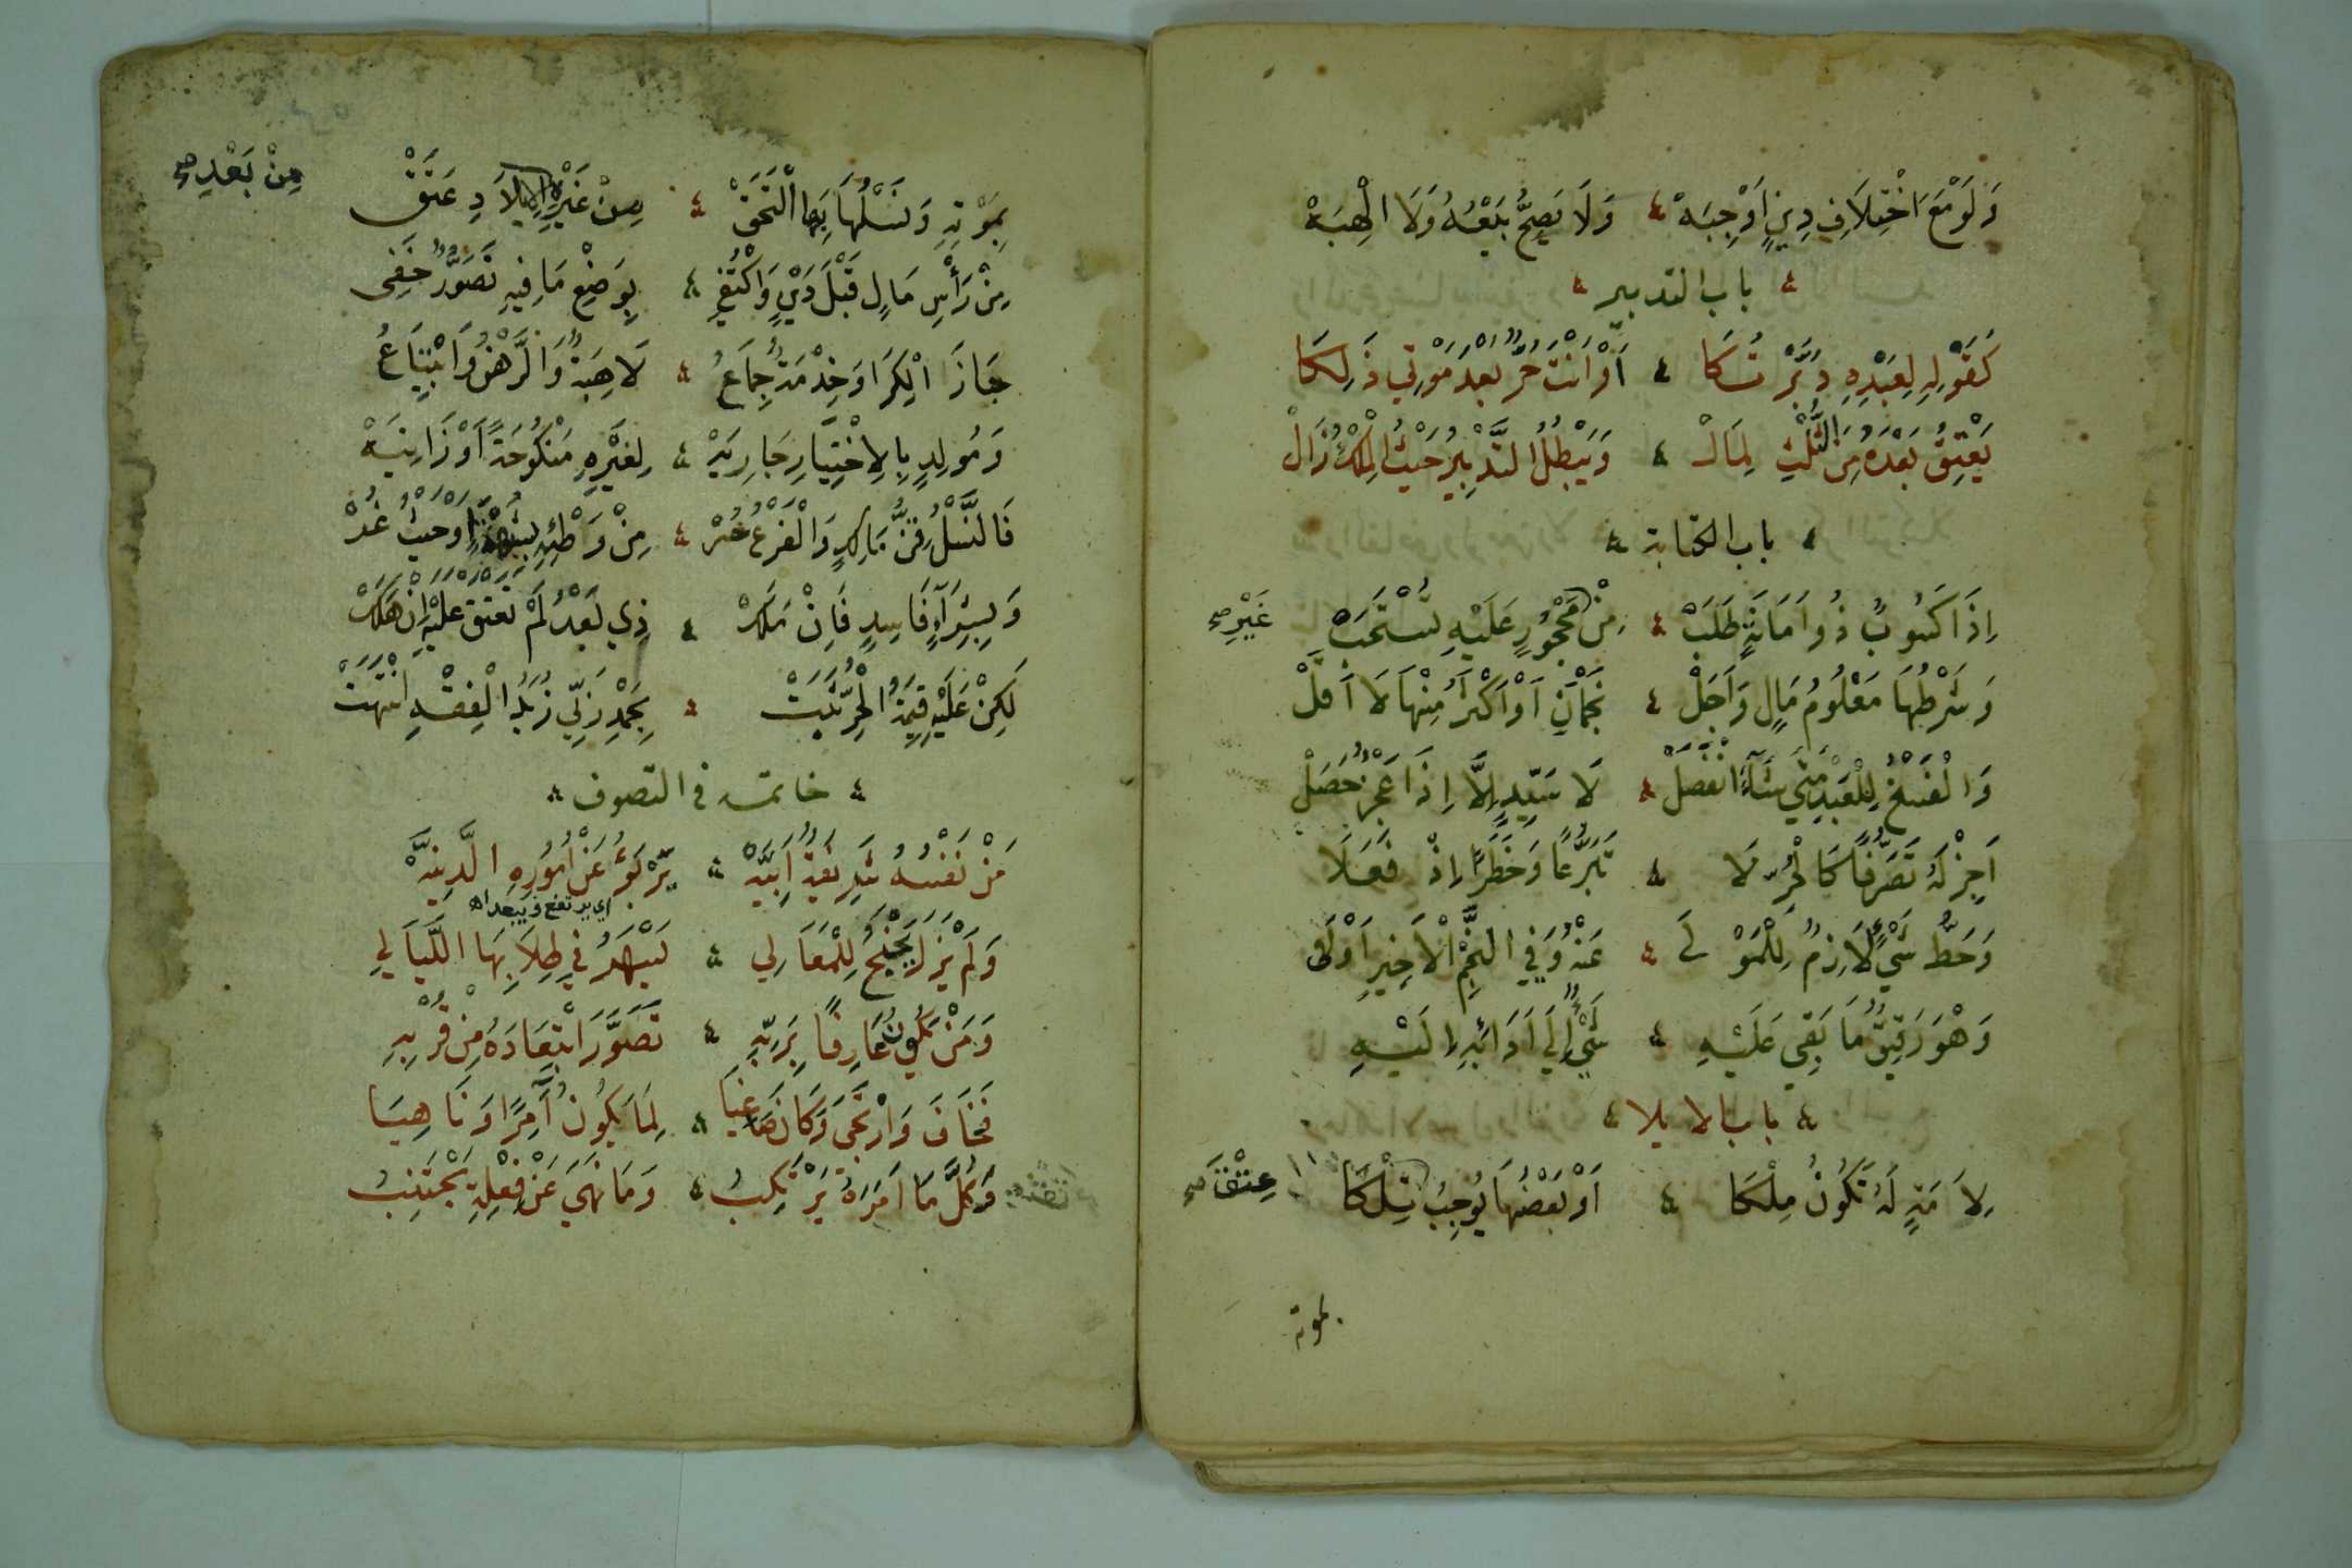 وَلَوْ مَعَ اخْتِلَافِ دِينٍ أَوْجَبَهْ ۞ وَلَا يَصِحُّ بَيْعُهُ وَلَا الْهِبَهْ
باب التدبير
كَقَوْلِهِ لِعَبْدِهِ دَبَّرْتُكَا ۞ أَوْ أَنْتَ حُرٌّ بَعْدَ مَوْتِي ذَلِكَا
يَعْتِقُ بَعْدَهُ مِنَ الثُّلْثِ لِمَالْ ۞ وَيَبْطُلُ التَّدْبِيرُ حَيْثُ الْمِلْكُ زَالْ
باب الكتابة
إِذَا كَسُوبٌ ذُو أَمَانَةٍ طَلَبْ ۞ مِنْ مَحْجُورٍ عَلَيْهِ تُسْتَحَبْ
غَيْرِ صح
وَشَرْطُهَا مَعْلُومُ مَالٍ وَأَجَلْ ۞ نَجْمَانِ أَوْ أَكْثَرُ مِنْهَا لَا أَقَلْ
وَالْفَسْخُ لِلْعَبْدِ مَتَى شَآءَ انْفَصَلْ ۞ لَا سَيِّدٍ إِلَّا إِذَا عَجْزٌ حَصَلْ
أَجِزْ لَهُ تَصَرُّفًا كَالْحُرِّ لَا ۞ تَبَرُّعًا وَخَطَرًا إِذْ فَعَلَا
وَحَطُّ شَيْءٍ لَازِمٌ لِلْمَوْلَى ۞ عَنْهُ وَفِي النَّجْمِ الْأَخِيرِ أَوْلَى
وَهْوَ رَقِيقٌ مَا بَقِي عَلَيْهِ ۞ شَيْءٌ إِلَى أَدَائِهِ إِلَيْهِ
باب الايلا
لِأَمَةٍ لَهُ تَكُونُ مِلْكَا ۞ أَوْ بَعْضُهَا يُوجِبُ تِلْكَا
عِتْقَ صح
بموته
بِمَوْتِهِ وَنَسْلُهَا بِهَا الْتَحَقْ ۞ مِنْ غَيْرِهِ الِايلَادِ عَتَقْ
مِنْ بَعْدِ صح
مِنْ رَأْسِ مَالٍ قَبْلَ دَيْنٍ وَاكْتُفِي ۞ بِوَضْعِ مَا فِيهِ تَصَوُّرٌ خَفِي
جَازَ الْكِرَا وَخِدْمَةٌ جِمَاعُ ۞ لَا هِبَةٌ وَالرَّهْنُ وَابْتِيَاعُ
وَمُولِدٍ بِالِاخْتِيَارِ جَارِيَهْ ۞ لِغَيْرِهِ مَنْكُوحَةً أَوْ زَانِيَهْ
فَالنَّسْلُ قِنُّ مَالِكٍ وَالْفَرْعُ حُرْ ۞ مِنْ وَطْئِهِ بِشُبْهَةٍ أَوْ حَيْثُ غُرْ
وَبِشِرَآءٍ فَاسِدٍ فَإِنْ مَلَكْ ۞ ذِي بَعْدُ لَمْ تَعْتِقْ عَلَيْهِ إِنْ هَلَكْ
لَكِنْ عَلَيْهِ قِيمَةُ الْحُرِّ ثَبَتْ ۞ بِحَمْدِ رَبِّي زُبَدُ الْفِقْهِ انْتَهَتْ
خاتمه في التصوف
مَنْ نَفْسُهُ شَرِيفَةٌ أَبِيَّهْ ۞ يَرْبَؤُ عَنْ أُمُورِهِ الدَّنِيَّهْ
اي يرتفع ويبعد اه
وَلَمْ يَزَلْ يَجْنَحُ لِلْمَعَالِي ۞ يَسْهَرُ فِي طِلَابِهَا اللَّيَالِي
وَمَنْ يَكُونُ عَارِفًا بِرَبِّهِ ۞ تَصَوَّرَ ابْتِعَادَهُ مِنْ قُرْبِهِ
فَخَافَ وَارْتَجَى وَكَانَ صَاغِيَا ۞ لِمَا يَكُونُ آمِرًا وَنَاهِيَا
وَكُلُّ مَا أَمَرَهُ يَرْتَكِبُ ۞ وَمَا نَهَى عَنْ فِعْلِهِ يَجْتَنِبُ